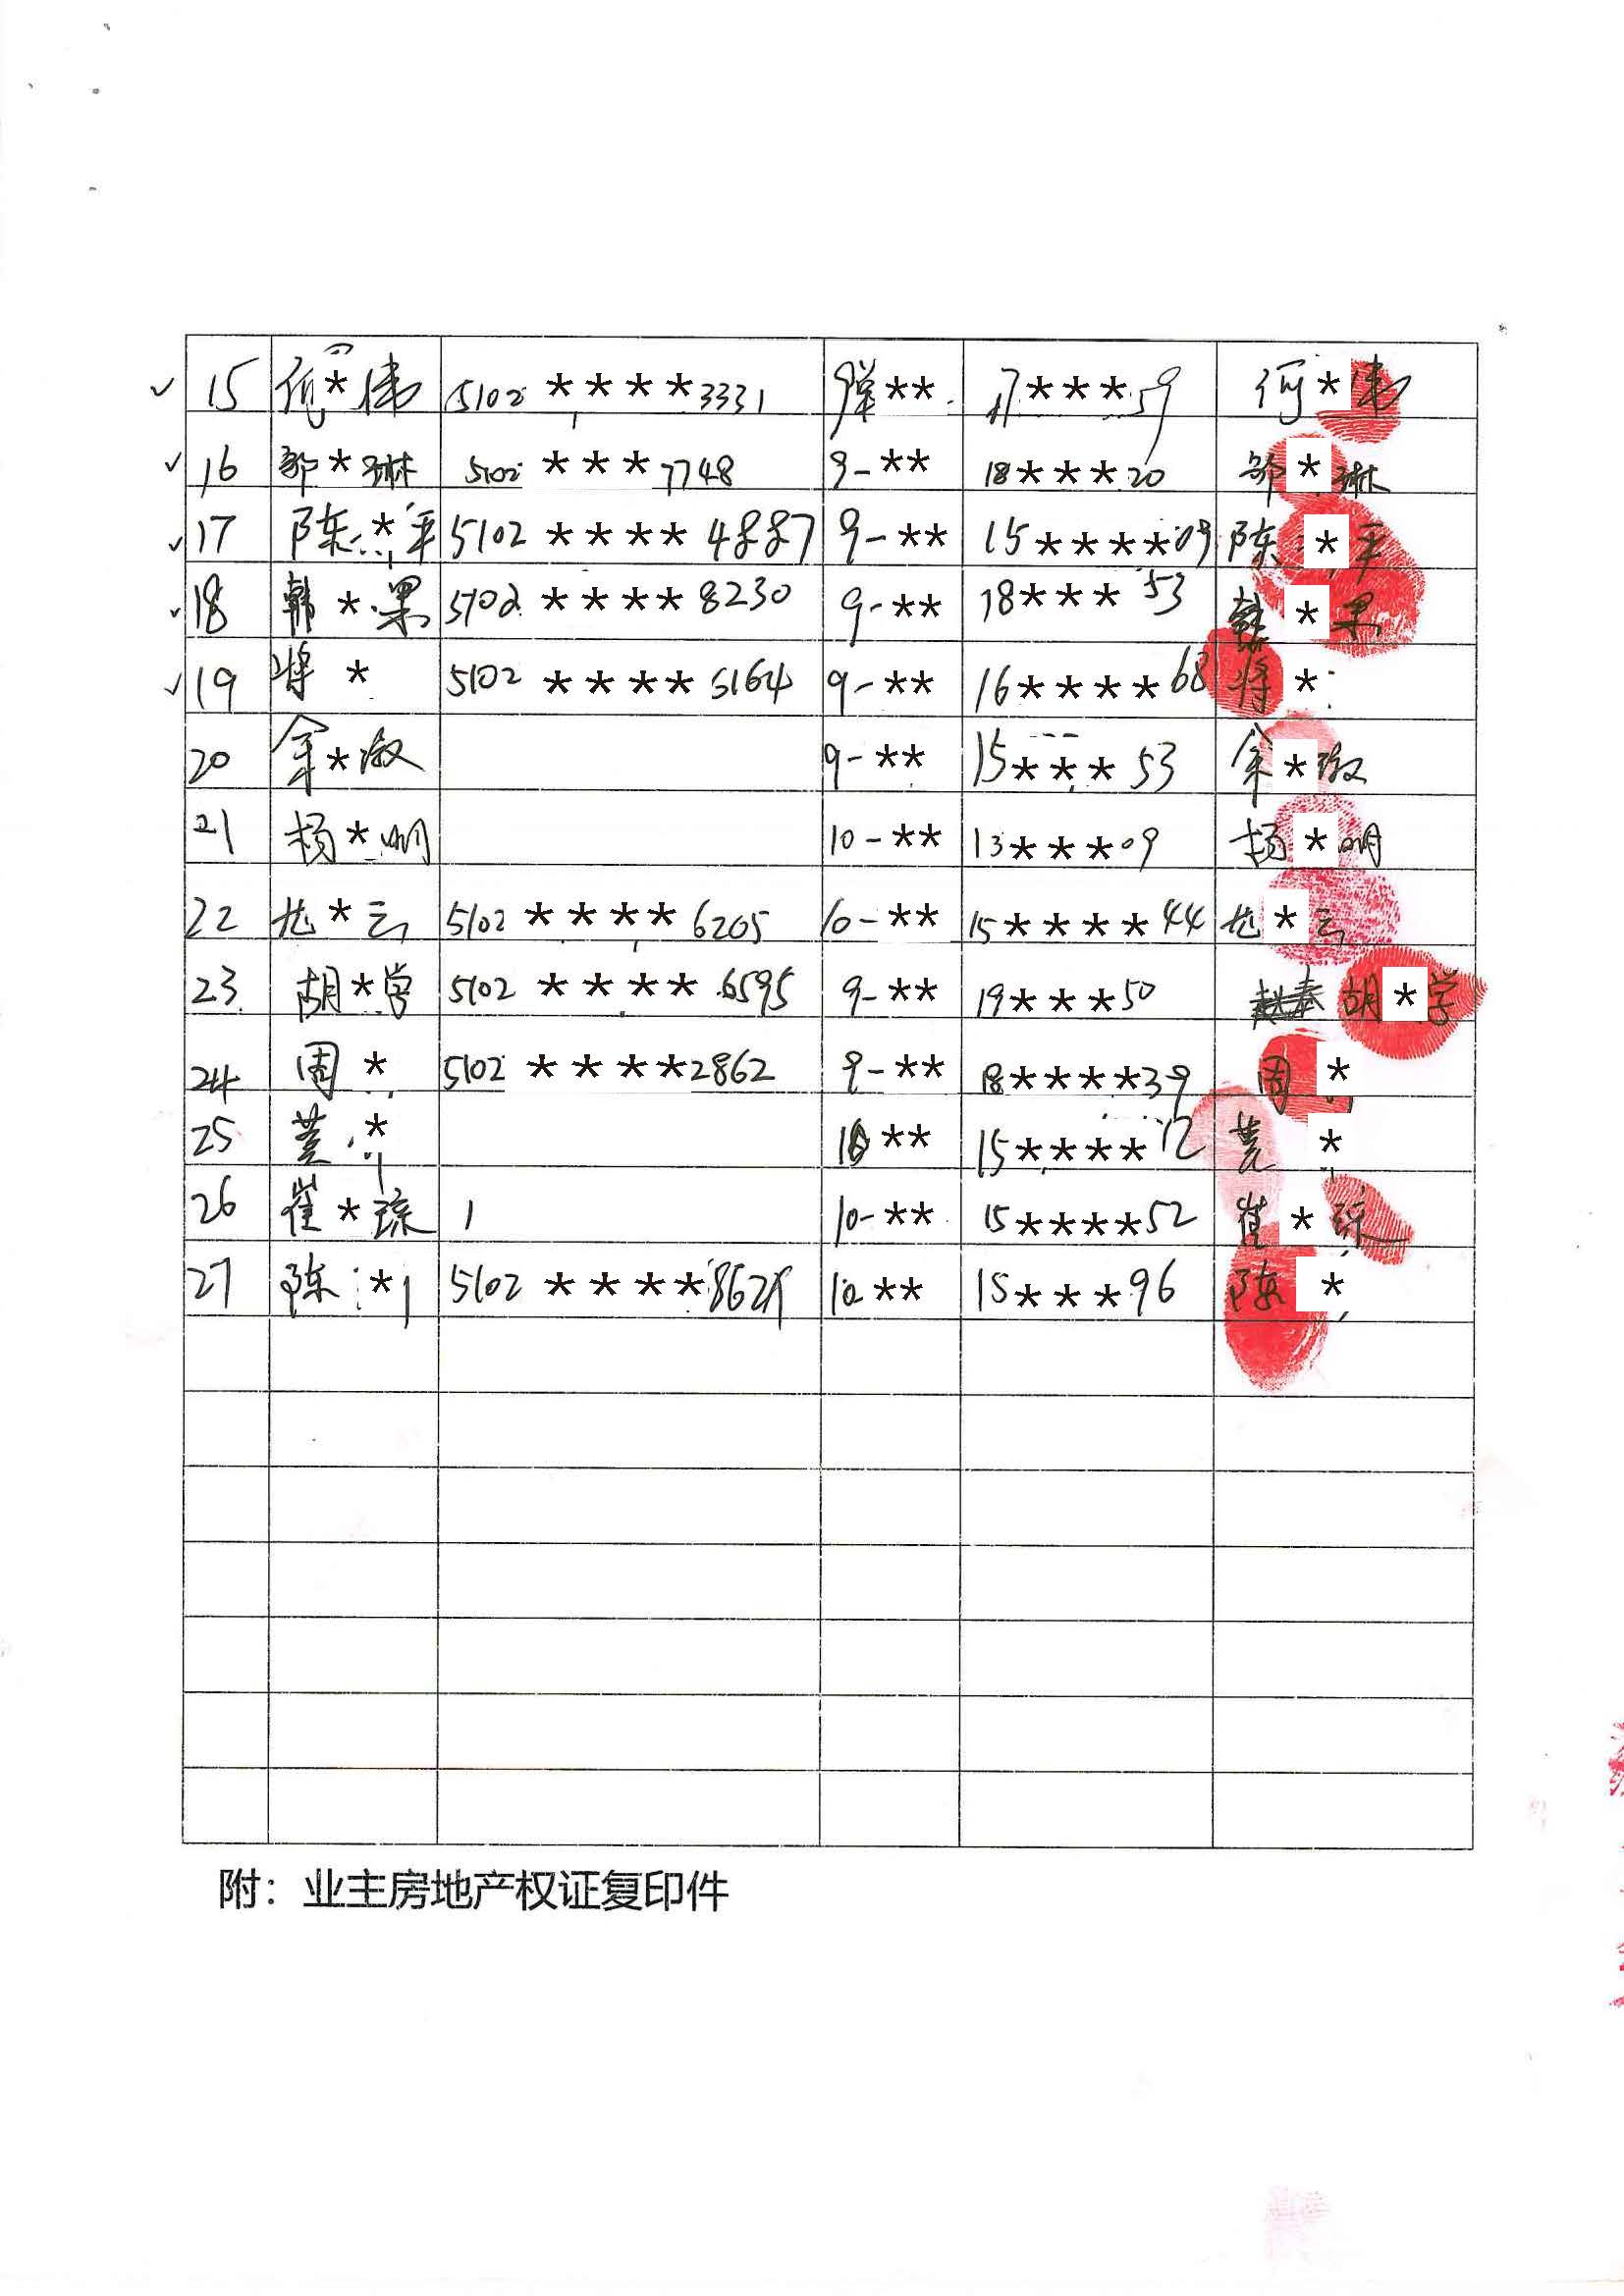 15 何*伟 5102 ****3331 ** 17***59 何*伟
16 邹*琳 5102 ***7748 9-** 18***20 邹*琳
17 陈*平 5102 ****4887 9-** 15****09 陈*平
18 韩*果 5102 ****8230 9-** 18***53 韩*果
19 蒋* 5102 ****5164 9-** 16****68 蒋*
20 余*淑 9-** 15***53 余*淑
21 杨*明 10-** 13***09 杨*明
22 *云 5102 ****6205 10-** 15****44 *云
23 胡*学 5102 ****6595 9-** 19***50 胡*学
24 周* 5102 ****2862 9-** 18****39 周*
25 * 10** 15****12 *
26 崔*琼 10-** 15****52 崔*琼
27 陈* 5102 ****862 10** 15***96 陈*
附：业主房地产权证复印件